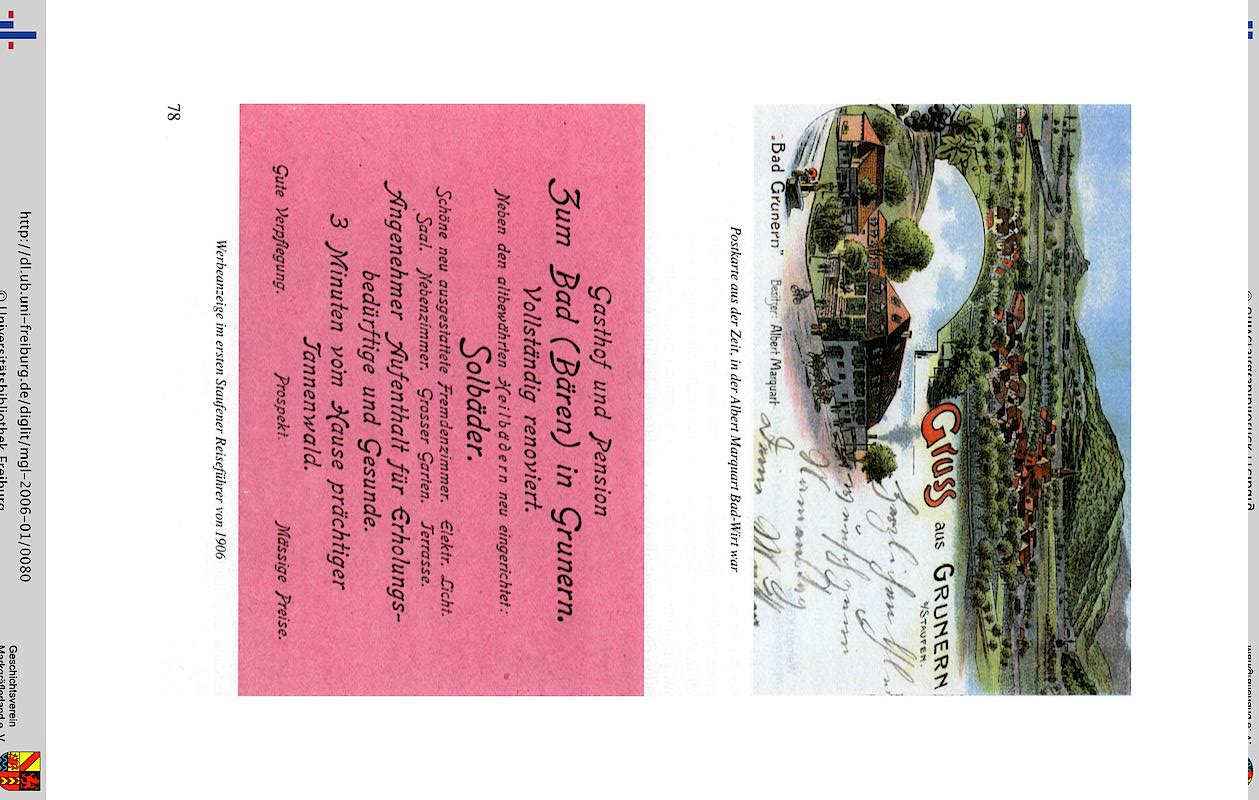 Gruss aus GRUNERN
b/STAUFEN.
"Bad Grunern" Besitzer: Albert Marquart
Postkarte aus der Zeit, in der Albert Marquart Bad-Wirt war
Gasthof und Pension
Zum Bad (Bären) in Grunern.
Vollständig renoviert.
Neben den altbewährten Heilbädern neu eingerichtet:
Solbäder.
Schöne neu ausgestattete Fremdenzimmer. Elektr. Licht.
Saal. Nebenzimmer. Grosser Garten. Terrasse.
Angenehmer Aufenthalt für Erholungs-
bedürftige und Gesunde.
3 Minuten vom Hause prächtiger
Tannenwald.
Gute Verpflegung. Prospekt. Mässige Preise.
Werbeanzeige im ersten Staufener Reiseführer von 1906
78
http://dl.ub.uni-freiburg.de/diglit/mgl-2006-01/0080
© Universitätsbibliothek Freiburg
Geschichtsverein
Markgräflerland e. V.